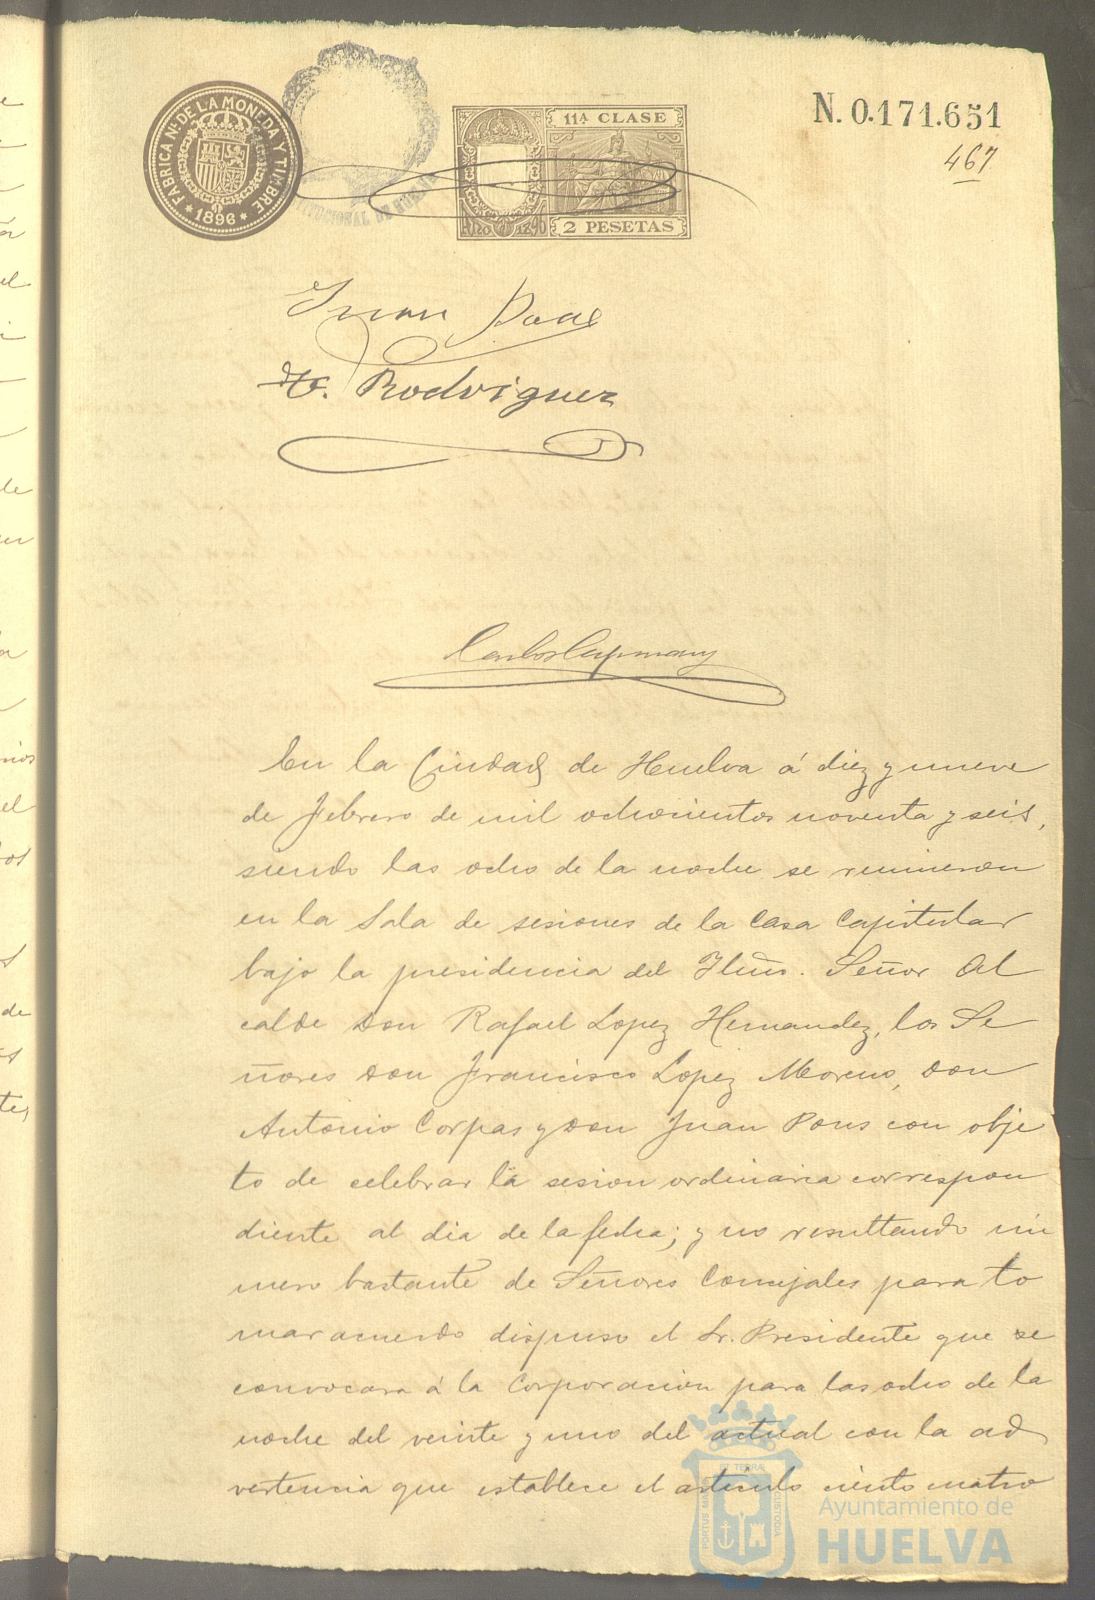 N. 0.171.651
467
FABRICA Nal. DE LA MONEDA Y TIMBRE
* 1896 *
11ª CLASE
AÑO 1896
2 PESETAS
Juan
Rodriguez
Carlos Capmany
En la Ciudad de Huelva á diez y nueve
de Febrero de mil ochocientos noventa y seis,
siendo las ocho de la noche se reunieron
en la Sala de sesiones de la Casa Capitular
bajo la presidencia del Iltmo. Señor Al
calde Don Rafael Lopez Hernandez, los Se
ñores Don Francisco Lopez Moreno, Don
Antonio Corpas y Don Juan Pons con obje
to de celebrar la sesion ordinaria correspon
diente al dia de la fecha; y no resultando nú
mero bastante de Señores Concejales para to
mar acuerdo dispuso el Sr. Presidente que se
convocara á la Corporacion para las ocho de la
noche del veinte y uno del actual con la ad
vertencia que establece el articulo ciento cuatro
PORTUS MARIS ET TERRAE CUSTODIA
Ayuntamiento de
HUELVA